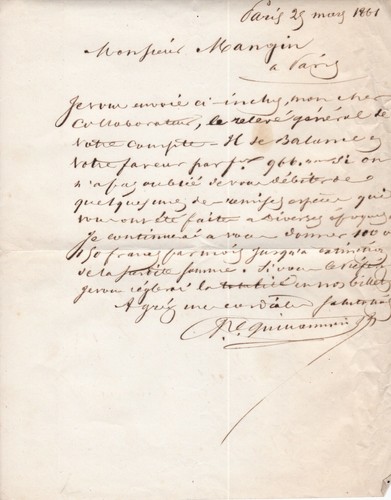 Paris 25 mars 1861
Monsieur Mangin
a Paris
Je vous envoie ci-inclus, mon cher
Collaborateur, le relevé général de
votre compte - Il se balance en
votre faveur par fr. 966. si on
n'a pas oublié de vous débiter de
quelques unes des remises especes qui
vous ont été faites a diverses epoques
Je continuerai a vous donner 100 ou
150 francs par mois jusqu'a extinction
de la somme. Si vous le
je vous réglerai la totalité en nos billets
Agréez mes cordiales salutations